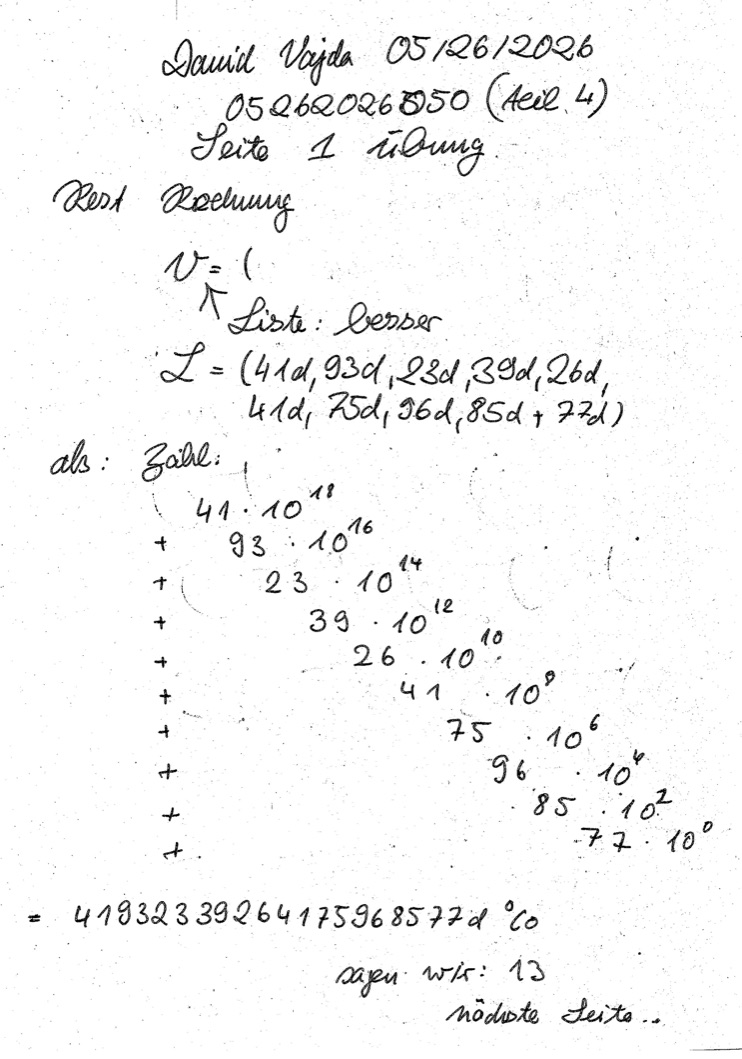 David Vajda 05/26/2026
052620265050 (teil 4)
Seite 1 übung
Rest Rechnung
V = (
↑ Liste: besser
L = (41d, 93d, 23d, 39d, 26d,
41d, 75d, 96d, 85d + 77d)
als: Zahl:
41 · 10^18
+ 93 · 10^16
+ 23 · 10^14
+ 39 · 10^12
+ 26 · 10^10
+ 41 · 10^8
+ 75 · 10^6
+ 96 · 10^4
+ 85 · 10^2
+ 77 · 10^0
= 41932339264175968577d %
sagen wir: 13
nächste Seite..